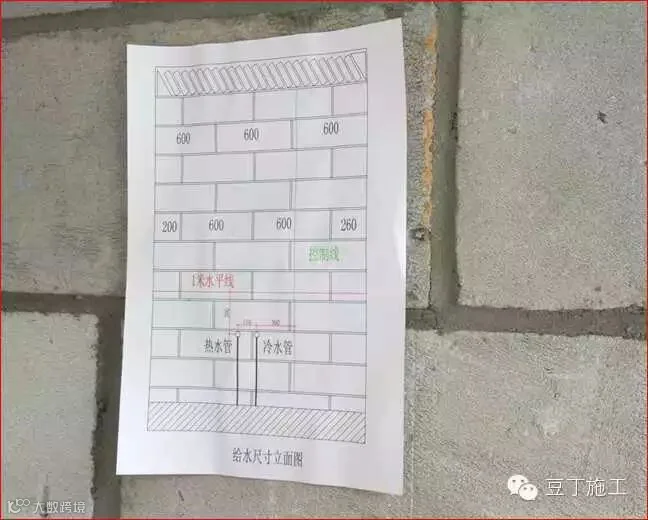 600 600 600
200 600 600 260
控制线
1米水平线
热水管 冷水管
给水尺寸立面图
豆丁施工
大数跨境